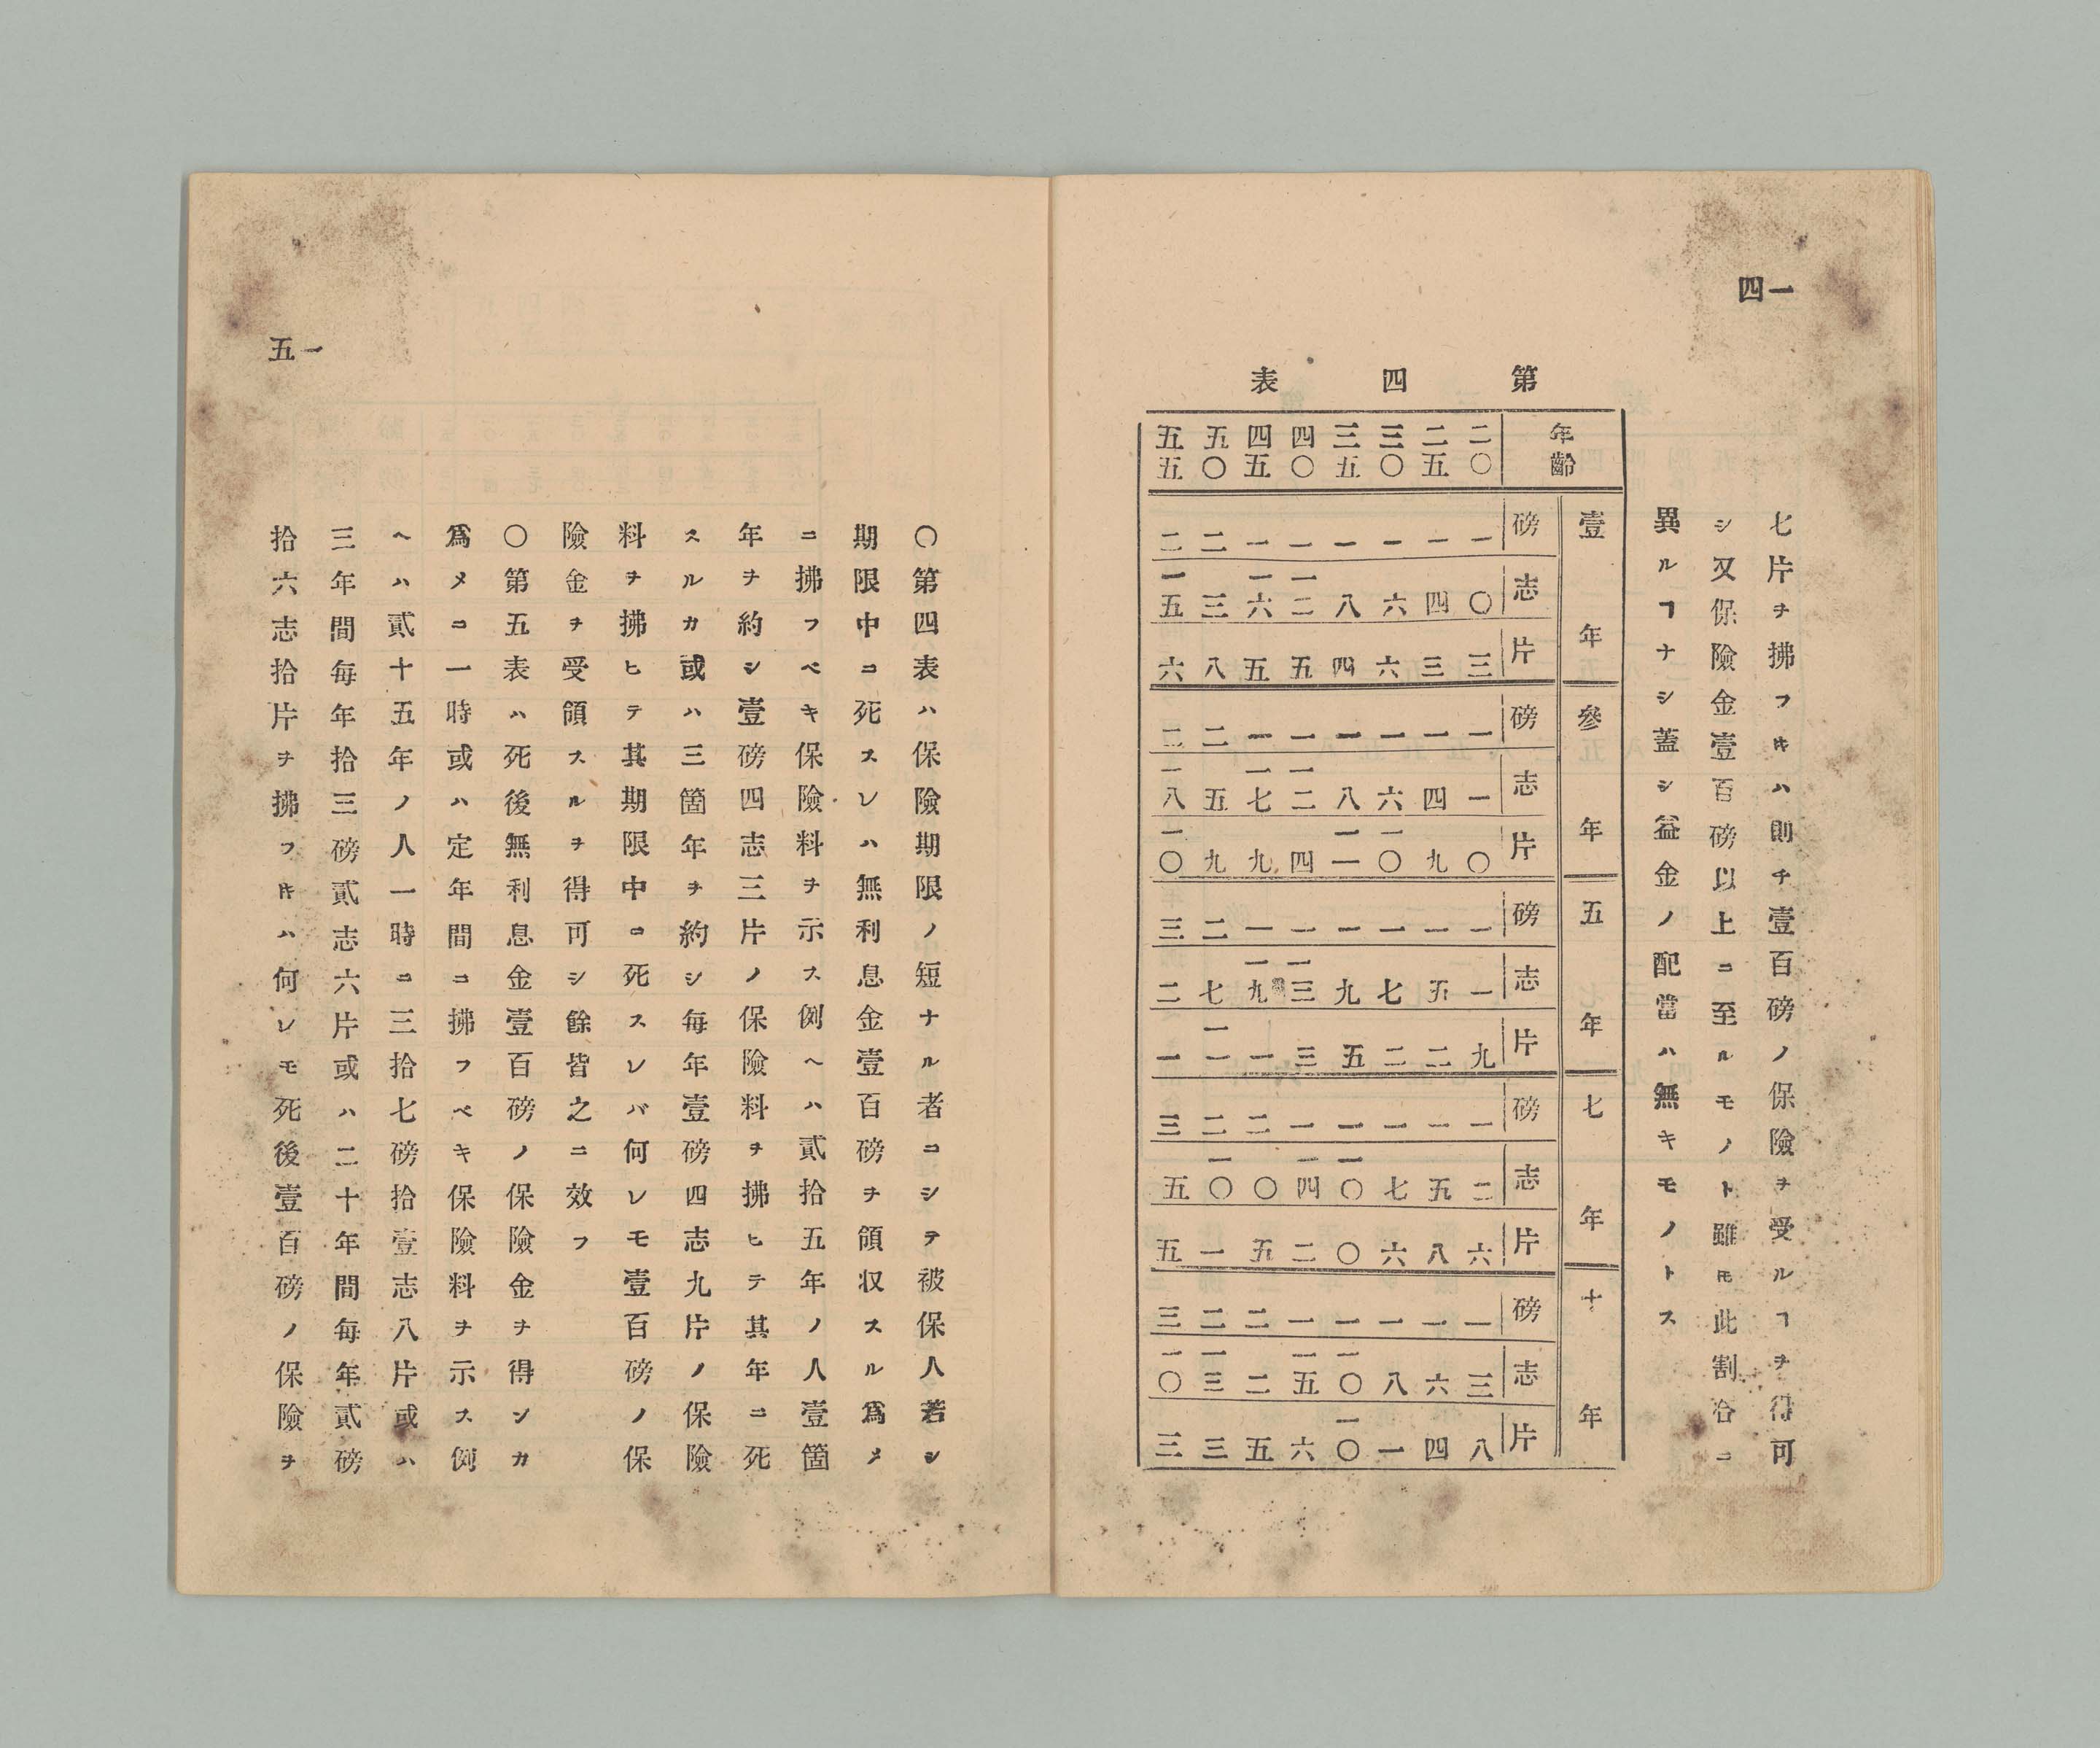 一四
七片ヲ拂フキハ則チ壹百磅ノ保險ヲ受ルヿヲ得可
シ又保險金壹百磅以上ニ至ルモノト雖𪜈此割合ニ
異ルヿナシ蓋シ益金ノ配當ハ無キモノトス
第四表
年齡 壹年 參年 五年 七年 十年
磅 志 片 磅 志 片 磅 志 片 磅 志 片 磅 志 片
二〇 一 〇 三 一 一 〇 一 一 九 一 二 六 一 三 八
二五 一 四 三 一 四 九 一 五 二 一 五 八 一 六 四
三〇 一 六 六 一 六 一〇 一 七 二 一 七 六 一 八 一
三五 一 八 四 一 八 一一 一 九 五 一 一〇 〇 一 一〇 一〇
四〇 一 一二 五 一 一二 四 一 一三 三 一 一四 二 一 一五 六
四五 一 一六 五 一 一七 九 一 一九 一 二 〇 五 二 二 五
五〇 二 三 八 二 五 九 二 七 一一 二 一〇 一 二 一三 三
五五 二 一五 六 二 一八 一〇 三 二 一 三 五 五 三 一〇 三
一五
〇第四表ハ保險期限ノ短ナル者ニシテ被保人若シ
期限中ニ死スレハ無利息金壹百磅ヲ領収スル爲メ
ニ拂フベキ保險料ヲ示ス例ヘハ貳拾五年ノ人壹箇
年ヲ約シ壹磅四志三片ノ保險料ヲ拂ヒテ其年ニ死
スルカ或ハ三箇年ヲ約シ毎年壹磅四志九片ノ保險
料ヲ拂ヒテ其期限中ニ死スレバ何レモ壹百磅ノ保
險金ヲ受領スルヲ得可シ餘皆之ニ效フ
〇第五表ハ死後無利息金壹百磅ノ保險金ヲ得ンカ
爲メニ一時或ハ定年間ニ拂フベキ保險料ヲ示ス例
ヘハ貳十五年ノ人一時ニ三拾七磅拾壹志八片或ハ
三年間毎年拾三磅貳志六片或ハ二十年間毎年貳磅
拾六志拾片ヲ拂フキハ何レモ死後壹百磅ノ保險ヲ